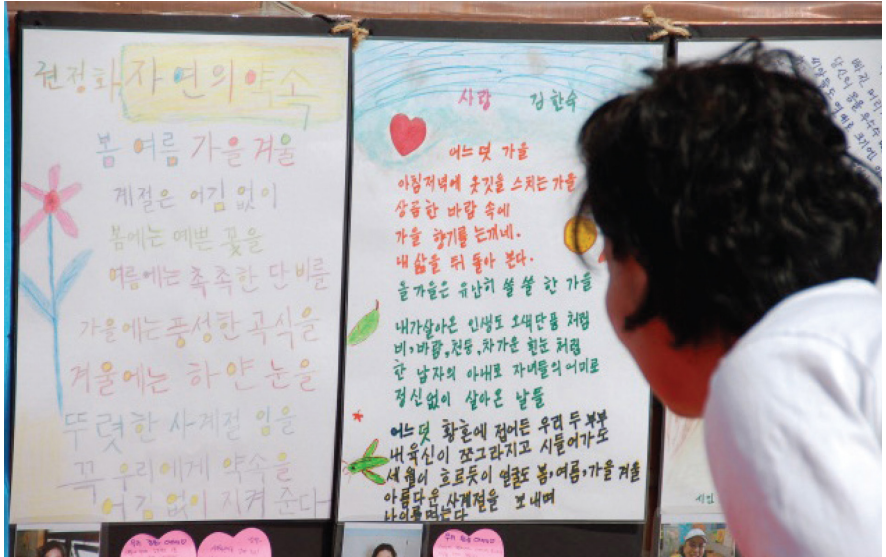 권정화 자연의 약속
봄 여름 가을 겨울
계절은 어김없이
봄에는 예쁜 꽃을
여름에는 촉촉한 단비를
가을에는 풍성한 곡식을
겨울에는 하얀 눈을
뚜렷한 사계절 잉을
꼭 우리에게 약속을
어김 없이 지켜 준다
사랑 김한숙
어느덧 가을
아침저녁에 옷깃을 스치는 가을
상곰한 바람 속에
가을 향기를 느끼네.
내 삶을 뒤 돌아 본다.
올 가을은 유난히 쓸 쓸 한 가을
내가살아온 인생도 오색단풍 처럼
비,바람,천둥,차가운 흰눈 처럼
한 남자의 아내로 자녀들의 어미로
정신없이 살아온 날들
어느덧 황혼에 접어든 우리 두 부부
내 육신이 쪼그라지고 시들어가도
세월이 흐르듯이 얼굴도 봄,여름,가을 겨울
아름다운 사계절을 보내며
나이를먹는다
당신의 몸을 우수수
시인